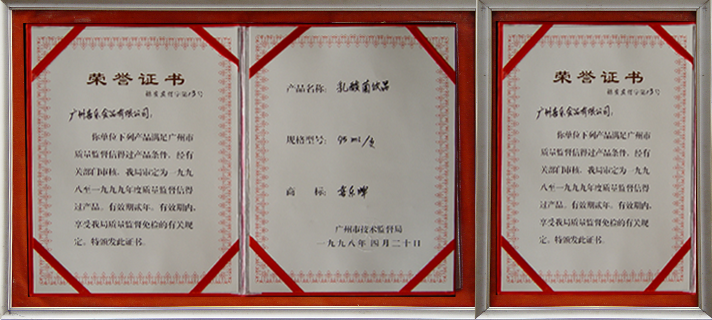 荣誉证书
广州喜乐食品有限公司:
你单位下列产品满足广州市
质量监督信得过产品条件,经有
关部门审核,我局审定为一九九
八至一九九九年度质量监督信得
过产品,有效期贰年。有效期内,
享受我局质量监督免检的有关规
定。特颁发此证书。
产品名称: 乳酸菌饮品
规格型号: 95ml/支
商 标: 喜乐牌
广州市技术监督局
一九九八年四月二十日
荣誉证书
广州喜乐食品有限公司:
你单位下列产品满足广州市
质量监督信得过产品条件,经有
关部门审核,我局审定为一九九
八至一九九九年度质量监督信得
过产品,有效期贰年。有效期内,
享受我局质量监督免检的有关规
定。特颁发此证书。